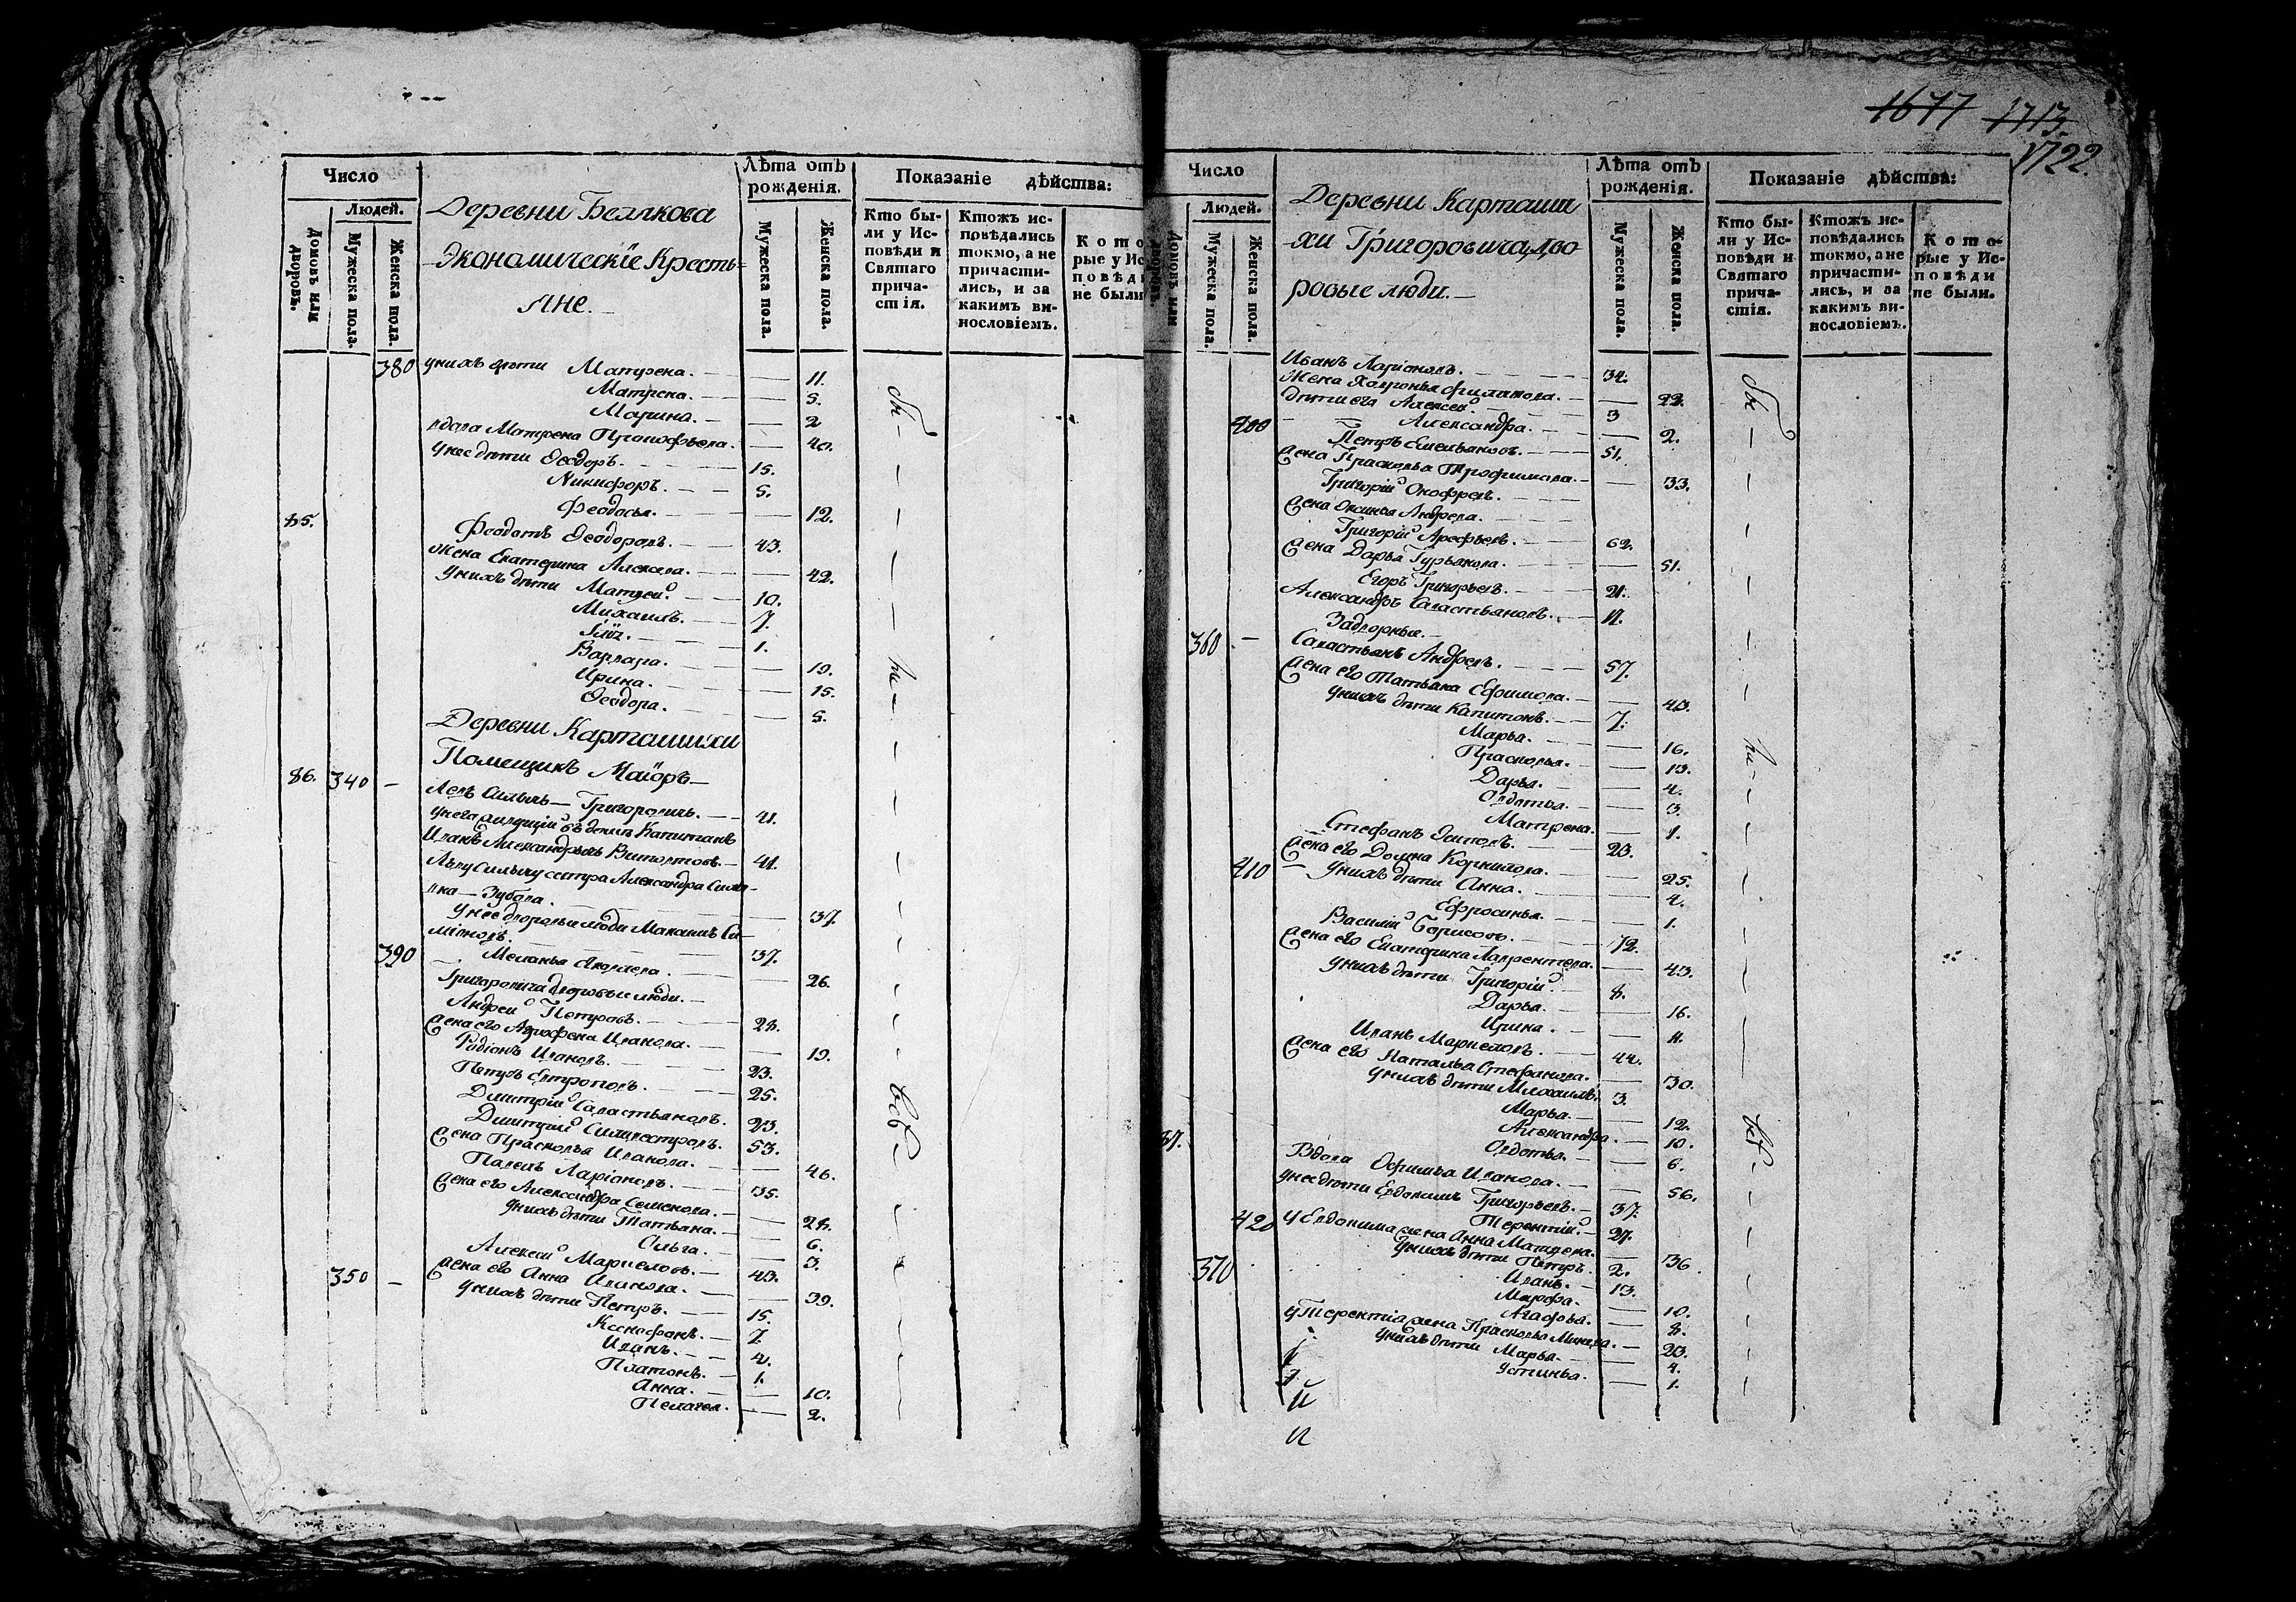 1677 1713.
1722.
Число
Людей.
Домовъ или дворовъ.
Мужеска пола.
Женска пола.
Деревни Белякова
Экономическіе Кресть=
яне.
Лѣта отъ рожденія.
Мужеска пола.
Женска пола.
Показаніе дѣйства:
Кто бы-
ли у Ис-
повѣди и
Святаго
прича-
стія.
Ктожъ ис-
повѣдались
токмо, а не
причасти-
лись, и за
какимъ ви-
нословіемъ.
Кото
рые у Ис
повѣди
не были
380 у нихъ дѣти Матрена. 11.
Матрена. 5.
Марина. 2
вдова Матрена Прокофьева. 40.
у нее дѣти Ѳеодоръ. 15.
Никифоръ. 5.
Феодосья. 12.
85.
Феодотъ Ѳеодоровъ. 43.
Жена Екатерина Алексева. 42.
у нихъ дѣти Матвей. 10.
Михаилъ. 7.
1.
Варвара. 19.
Ирина. 15.
Ѳеодора. 5.
Деревни Карташихи
Помещикъ Маіоръ—
86. 340 — Левъ Силычь — Григоровичь. 41.
у него живущій въ доме Капитанъ
Иванъ Александровъ Витовтовъ. 41.
Льву Силычу сестра Александра Силы-
вна — Зубова. 37.
у нее дворовые люди Максимъ Си-
міоновъ. 37.
390 Меланья Яковлева. 26.
Григоровича дворовые люди.
Андрей Петровъ. 28.
Жена его Агрофена Иванова. 19.
Радіонъ Ивановъ. 23.
Петръ Евтроповъ. 25.
Дмитрій Савастьяновъ. 23.
Дмитрій Силивестровъ. 53.
Жена Прасковья Иванова. 46.
Павелъ Ларіоновъ. 35.
Жена его Александра Семенова. 28.
у нихъ дѣти Татьяна. 6.
Ольга. 3
Алексей Маркеловъ. 43.
350 — Жена его Анна Иванова. 39.
у нихъ дѣти Петръ. 15.
Ксенофонъ. 7.
Иванъ. 4.
Платонъ. 1.
Анна. 10.
Пелагея. 2.
Число
Людей.
Домовъ или дворовъ.
Мужеска пола.
Женска пола.
Деревни Карташи
хи Григоровича дво
ровые люди.
Лѣта отъ рожденія.
Мужеска пола.
Женска пола.
Показаніе дѣйства:
Кто бы-
ли у Ис-
повѣди и
Святаго
прича-
стія.
Ктожъ ис-
повѣдались
токмо, а не
причасти-
лись, и за
какимъ ви-
нословіемъ.
Кото-
рые у Ис-
повѣди
не были.
Иванъ Ларіоновъ. 34.
Жена Хавронья Филатова. 22.
дѣти его Алексей. 3
400 Александра. 2.
Петръ Емельяновъ. 51.
Жена Прасковья Трофимова. 33.
Григорій Онофревъ.
Жена Оксинья Андрева.
Григорій Арефьевъ. 62.
Жена Дарья Гурьянова. 51.
Егоръ Григорьевъ. 21.
Александръ Савастьяновъ. 11.
Задворные.
360 — Савастьянъ Андревъ. 57.
Жена его Татьяна Ефимова. 43.
у нихъ дѣти Капитонъ. 7.
Марья. 16.
Прасковья. 13.
Дарья. 4.
Овдотья. 3
Матрена. 1.
Стефанъ Осиповъ. 23.
Жена его Домна Корнилова. 25.
410 — у нихъ дѣти Анна. 4.
Ефросинья. 1.
Василій Борисовъ. 72.
Жена его Екатерина Лаврентева. 43.
у нихъ дѣти Григорій. 8.
Дарья. 16.
Ирина. 11.
Иванъ Маркеловъ. 44.
Жена его Наталья Стефанова. 30.
у нихъ дѣти Михаилъ. 3.
Марья. 12.
Александра. 10.
Овдотья. 6.
87.
Вдова Офимья Иванова. 56.
у нее дѣти Евдокимъ Григорьевъ. 37.
Терентій. 27.
420 у Евдокима жена Анна Матвева. 36
у нихъ дѣти Петръ. 2.
370 Иванъ. 13.
Марфа. 10.
Агафья. 8.
у Терентія жена Прасковья Минева. 23.
у нихъ дѣти Марья. 4.
Устинья. 1.